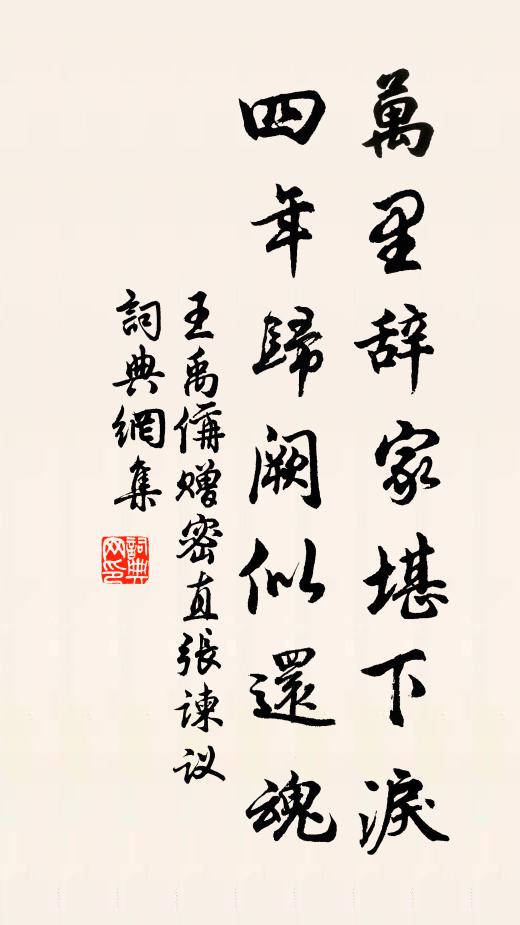 萬里辞家堪下淚
四年歸闕似還魂
王禹偁赠密直張諫议
詞典網集
詞典网印